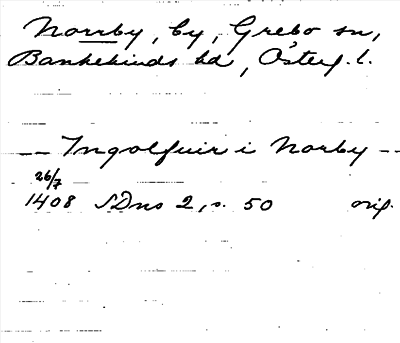 Norrby, by, Grebo sn,
Bankekinds hd, Österg. l.
-- Ingolfuir i Norby --
26/7
1408 SDns 2, s. 50 orig.